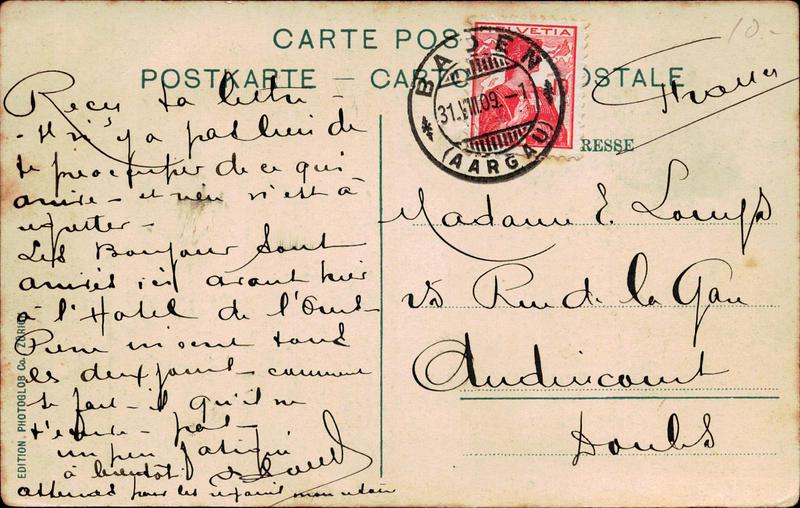 CARTE POS
POSTKARTE — CARTO OSTALE
HELVETIA
BADEN
31.VII.09.–1
(AARGAU)
RESSE
10.-
France
Reçu ta lettre –
– Il n'y a pas lieu de
te préoccuper de ce qui
arrive – et rien n'est à
regretter –
Les Bonjour sont
arrivés ici avant hier
à l'Hotel de l'Ours –
Pierre m'écrit tous
les deux jours – comment
se fait-il qu'il ne
t'écrive – pas –
un peu fatigué
à bientôt
pour les
Madame E.
Rue de la Gare
Audincourt
Doubs
EDITION. PHOTOGLOB Co. ZÜRICH